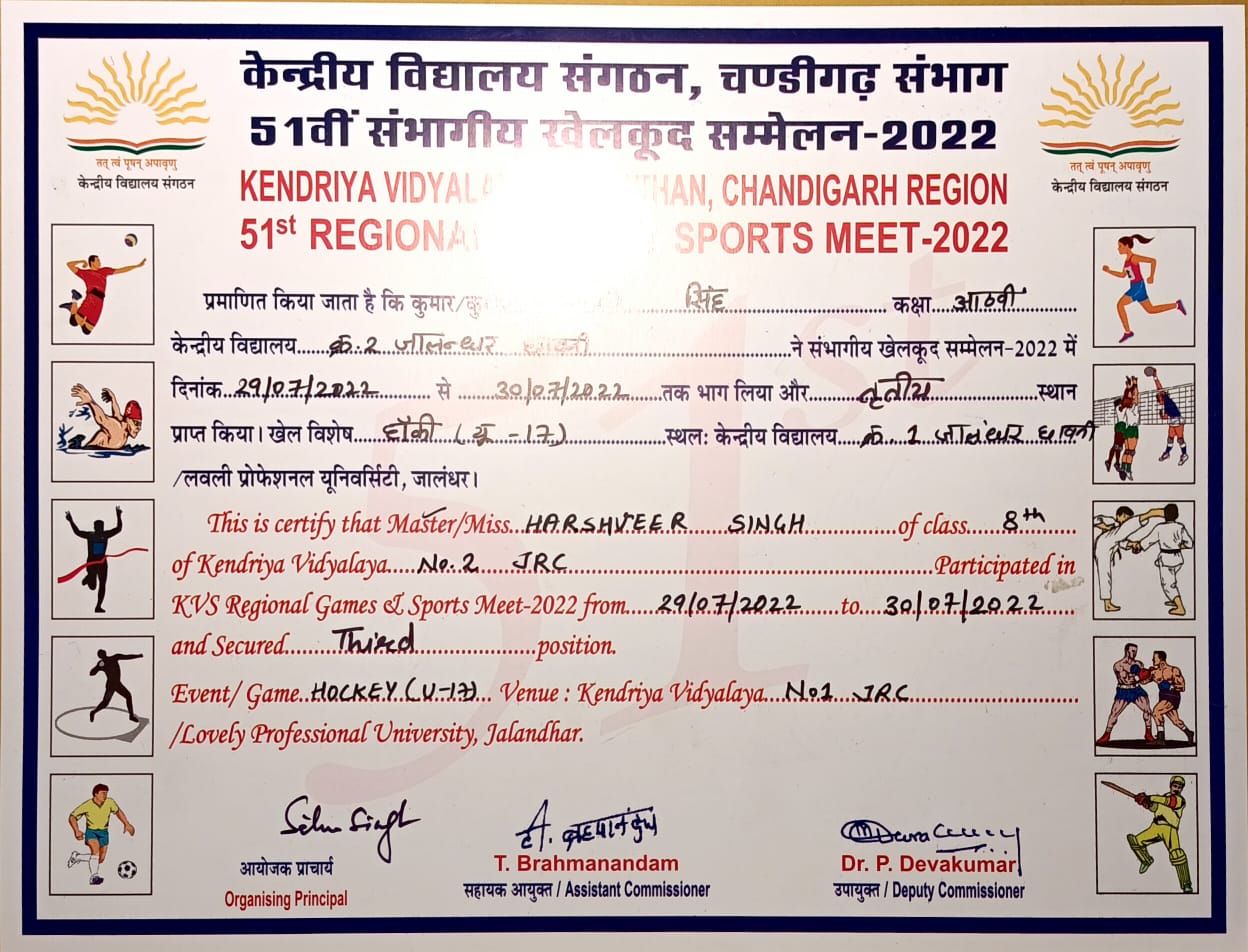 केन्द्रीय विद्यालय संगठन, चण्डीगढ़ संभाग
51वीं संभागीय खेलकूद सम्मेलन-2022
तत् त्वं पूषन् अपावृणु
केन्द्रीय विद्यालय संगठन
तत् त्वं पूषन् अपावृणु
केन्द्रीय विद्यालय संगठन
KENDRIYA VIDYALA THAN, CHANDIGARH REGION
51st REGIONA SPORTS MEET-2022
प्रमाणित किया जाता है कि कुमार/कु सिंह कक्षा आठवीं
केन्द्रीय विद्यालय क्र.2 जालन्धर छावनी ने संभागीय खेलकूद सम्मेलन-2022 में
दिनांक 29/07/2022 से 30/07/2022 तक भाग लिया और तृतीय स्थान
प्राप्त किया। खेल विशेष हॉकी (यू -17) स्थलः केन्द्रीय विद्यालय क्र. 1 जालंधर छावनी
/लवली प्रोफेशनल यूनिवर्सिटी, जालंधर।
This is certify that Master/Miss HARSHVEER SINGH of class 8th
of Kendriya Vidyalaya No. 2 JRC Participated in
KVS Regional Games & Sports Meet-2022 from 29/07/2022 to 30/07/2022
and Secured Third position.
Event/ Game HOCKEY (U-17) Venue : Kendriya Vidyalaya No1 JRC
/Lovely Professional University, Jalandhar.
आयोजक प्राचार्य
Organising Principal
T. Brahmanandam
सहायक आयुक्त / Assistant Commissioner
Dr. P. Devakumar
उपायुक्त / Deputy Commissioner